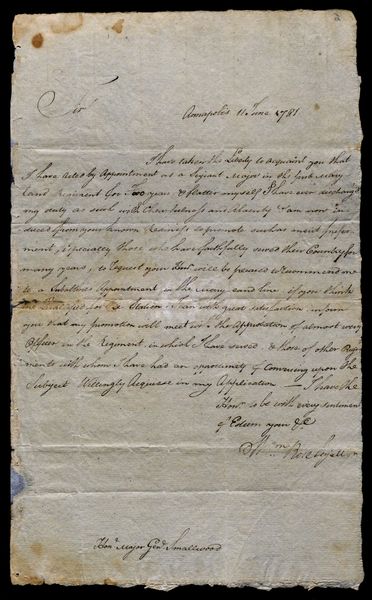 Annapolis 11 June 1781
Sir
I have taken the Liberty to acquaint you that
I have acted by Appointment as a Serjant Major in the Mary
land Regiment for Two years & flatter myself I have ever discharg'd
my duty as such with Chearfulness and Alacrity I am now in
duced from your known Readiness to promote such as merit Prefer
ment, Especially those who have faithfully served their Country for
many years, to request your Honr. will be pleased to recommend me
to a Subalterns Appointment in the Maryland line if you think
me Qualified for the Station I can with great satisfaction inform
you that my promotion will meet with The Approbation of almost every
Officer in the Regiment in which I have served & those of other Regi
ments with whom I have had an opportunity of Conversing upon The
Subject Wittingly Acquiesce in my Application — I have the
Honr. to be with every sentiment
of Esteem your &c
Wm.
Honl. Major Genl. Smallwood